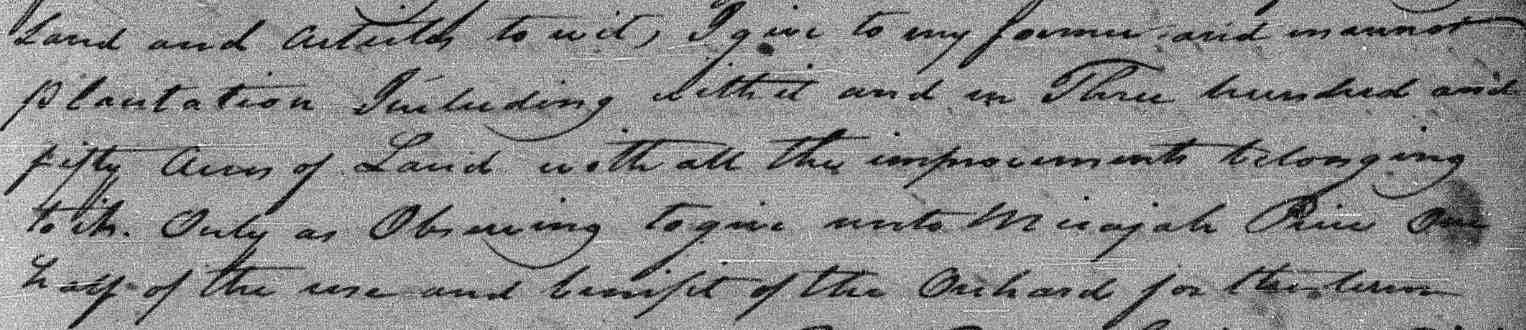 Land and articles to wit, I give to my former and mannor
plantation Including with it and in Three hundred and
fifty acres of Land with all the improvements belonging
to it. Only as Observing to give unto Micajah Price One
half of the use and benifit of the Orchard for the term